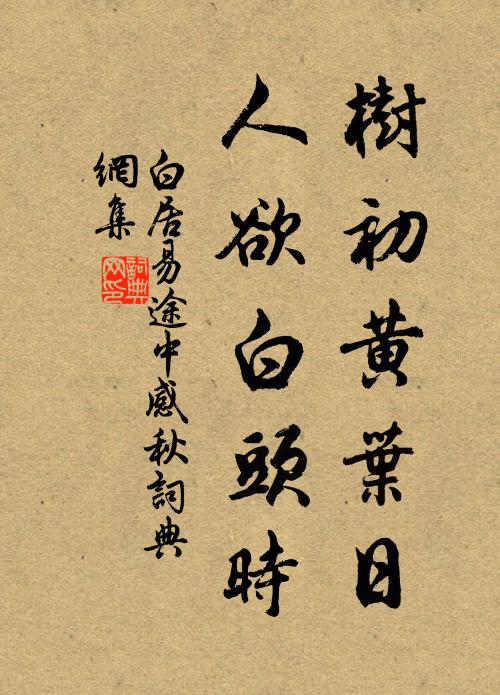 樹初黃葉日
人欲白頭時
白居易途中感秋詞典
網集
詞典
网印